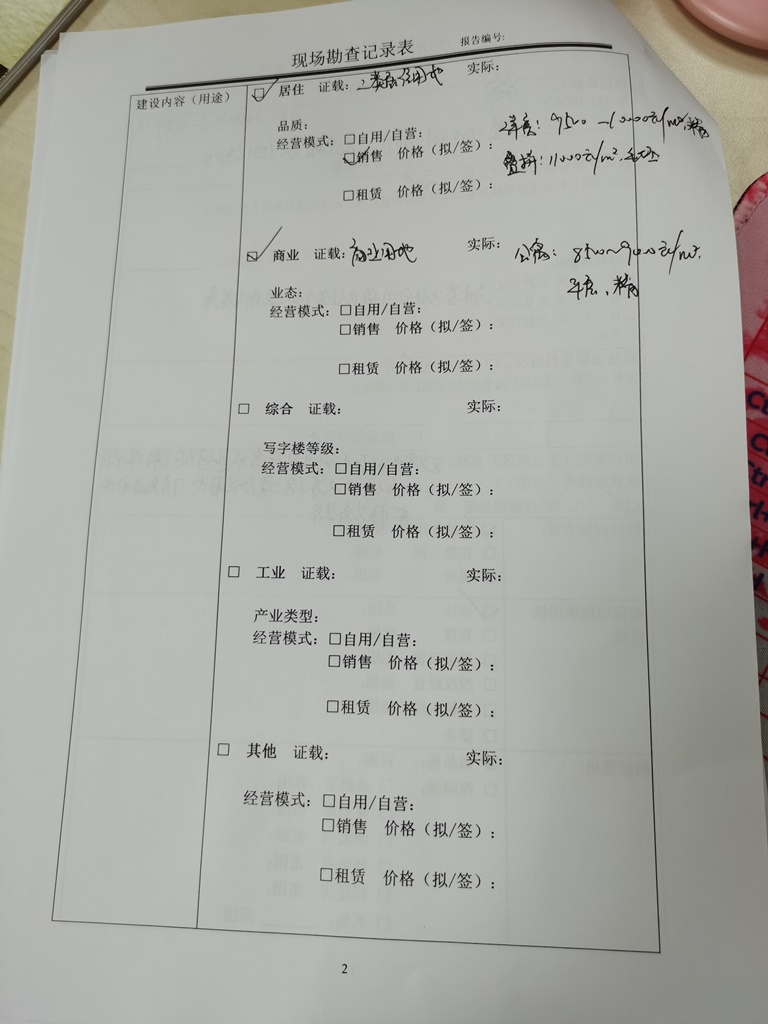 现场勘查记录表
报告编号:
建设内容（用途）
☑ 居住 证载: 二类居住用地 实际:
品质:
经营模式: □自用/自营:
洋房: 9500~10000元/m², 精
☑销售 价格（拟/签）:
叠拼: 11000元/m², 毛坯
□租赁 价格（拟/签）:
☑ 商业 证载: 商业用地 实际:
公寓: 8500~9000元/m²,
业态:
平层、精
经营模式: □自用/自营:
□销售 价格（拟/签）:
□租赁 价格（拟/签）:
□ 综合 证载: 实际:
写字楼等级:
经营模式: □自用/自营:
□销售 价格（拟/签）:
□租赁 价格（拟/签）:
□ 工业 证载: 实际:
产业类型:
经营模式: □自用/自营:
□销售 价格（拟/签）:
□租赁 价格（拟/签）:
□ 其他 证载: 实际:
经营模式: □自用/自营:
□销售 价格（拟/签）:
□租赁 价格（拟/签）:
2